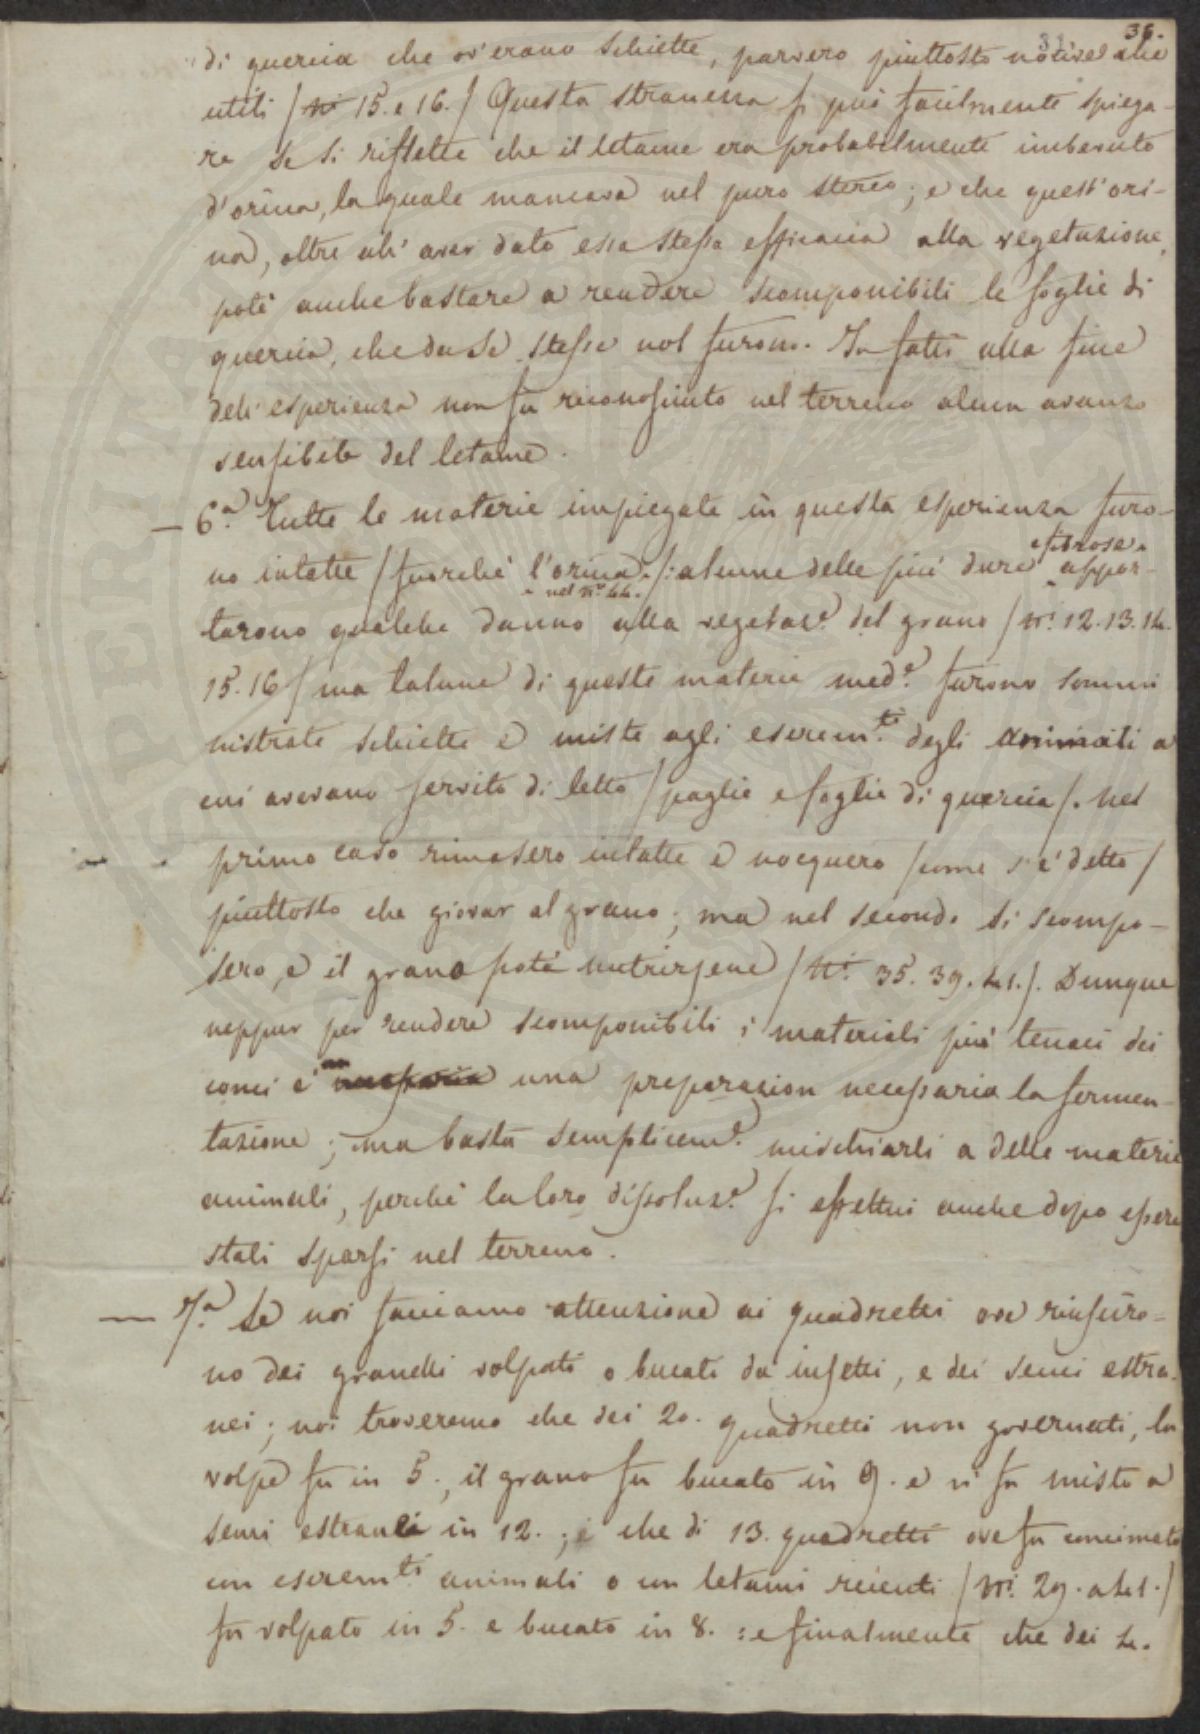 36.
di quercia che ov'erano schiette, parvero piuttosto nocive che
utili / ni 15. e 16. / Questa stranezza si può facilmente spiega-
re se si riflette che il letame era probabilmente imbevuto
d'orina, la quale mancava nel puro sterco; e che quest'ori-
na, oltre all' aver dato essa stessa efficacia alla vegetazione,
potè anche bastare a rendere scomponibili le foglie di
quercia, che da se stesse nol furono. In fatti alla fine
dell' esperienza non fu riconosciuto nel terreno alcun avanzo
sensibile del letame.
— 6.a Tutte le materie impiegate in questa esperienza furo-
no intatte / fuorchè l'orina nel n.o 44. /: alcune delle più dure e fibrose appor-
tarono qualche danno alla vegetaz.e del grano / ni. 12. 13. 14.
15. 16 / ma talune di queste materie med.e furono sommi
nistrate schiette e miste agli escrem.ti degli animali a
cui avevano servito di letto / paglie e foglie di quercia /. Nel
primo caso rimasero intatte e nocquero / come s'è detto /
piuttosto che giovar al grano; ma nel secondo si scompo-
sero, e il grano potè nutrirsene / Ni. 35. 39. 41. /. Dunque
neppur per rendere scomponibili i materiali più tenaci dei
conci è una preparazion necessaria la fermen-
tazione; ma basta semplicem.e mischiarli a delle materie
animali, perchè la loro dissoluz.e si effettui anche dopo essere
stati sparsi nel terreno.
— 7.a Se noi facciamo attenzione ai quadretti ove rinfuro-
no dei granelli volpati o bucati da insetti, e dei semi estra-
nei; noi troveremo che dei 20. quadretti non governati, la
volpe fu in 5., il grano fu bucato in 9. e vi fu misto a
semi estranei in 12.; e che di 13. quadretti ove fu concimato
con escrem.ti animali o con letami recenti / ni. 29. a 41. /
fu volpato in 5. e bucato in 8. : e finalmente che dei 4.